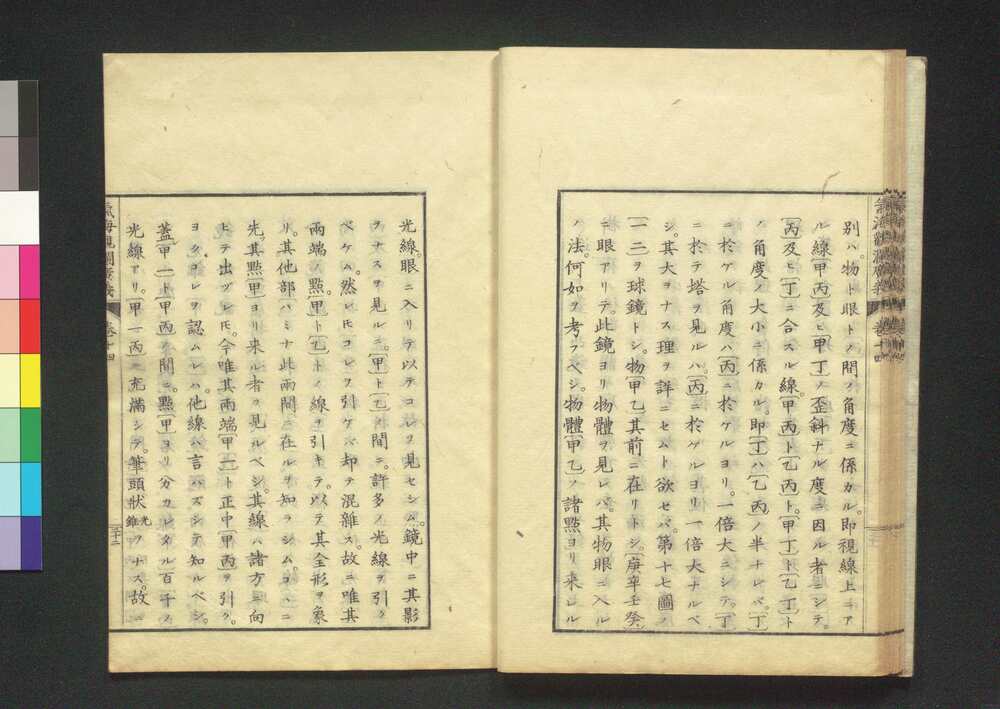 別ハ。物ト眼トノ間ノ角度ニ係カル。即視線上ニア
ル線〔甲丙〕及ビ〔甲丁〕ノ歪斜ナル度ニ因ル者ニシテ。
〔丙〕及ビ〔丁〕ニ合スル線。〔甲丙〕ト〔乙丙〕ト。〔甲丁〕ト〔乙丁〕ト
ノ角度ノ大小ニ係カル。即〔丁〕ハ〔乙丙〕ノ半ナレバ。〔丁〕
ニ於ケル角度ハ〔丙〕ニ於ケルヨリ。一倍大ニシテ。〔丁〕
ニ於テ塔ヲ見ルハ。〔丙〕ニ於ケルヨリ一倍大ナルベ
シ。其大ヲナス理ヲ詳ニセムト欲セバ。第十七圖ノ
一二ヲ球鏡トシ。物〔甲乙〕其前ニ在リトシ。〔庚辛壬癸〕
ニ眼アリテ。此鏡ヨリ物體ヲ見レバ。其物眼ニ入ル
ノ法。何如ヲ考フベシ。物體〔甲乙〕ノ諸點ヨリ来レル
氣海觀瀾廣義
卷十四
光線。眼ニ入リテ以テコレヲ見セシム。鏡中ニ其影
ヲナスヲ見ルニ。〔甲〕ト〔乙〕ノ間ニ。許多ノ光線ヲ引ク
ベケム。然レ𪜈コレヲ引ケバ却テ混雜ス。故ニ唯其
兩端ノ點。〔甲〕ト〔乙〕トノ線ヲ引キテ。以テ其全形ヲ象
リ。其他部ハミナ此兩間ニ在ルヲ知ラシム。コヽニ
先。其點〔甲〕ヨリ来ル者ヲ見ルベシ。其線ハ諸方ニ向
ヒテ出ヅレ𪜈。今唯其兩端〔甲一〕ト正中〔甲丙〕ヲ引ク。
ヨクコレヲ認ムレハ。他線ハ言ハズシテ知ルベシ。
蓋〔甲一〕ト〔甲丙〕ノ間ニ。點〔甲〕ヨリ分カレタル百千ノ
光線アリ。〔甲一丙〕ニ充滿シテ。筆頭狀光錐ヲナス。故ニ
氣海觀瀾廣義
卷十四
三十二